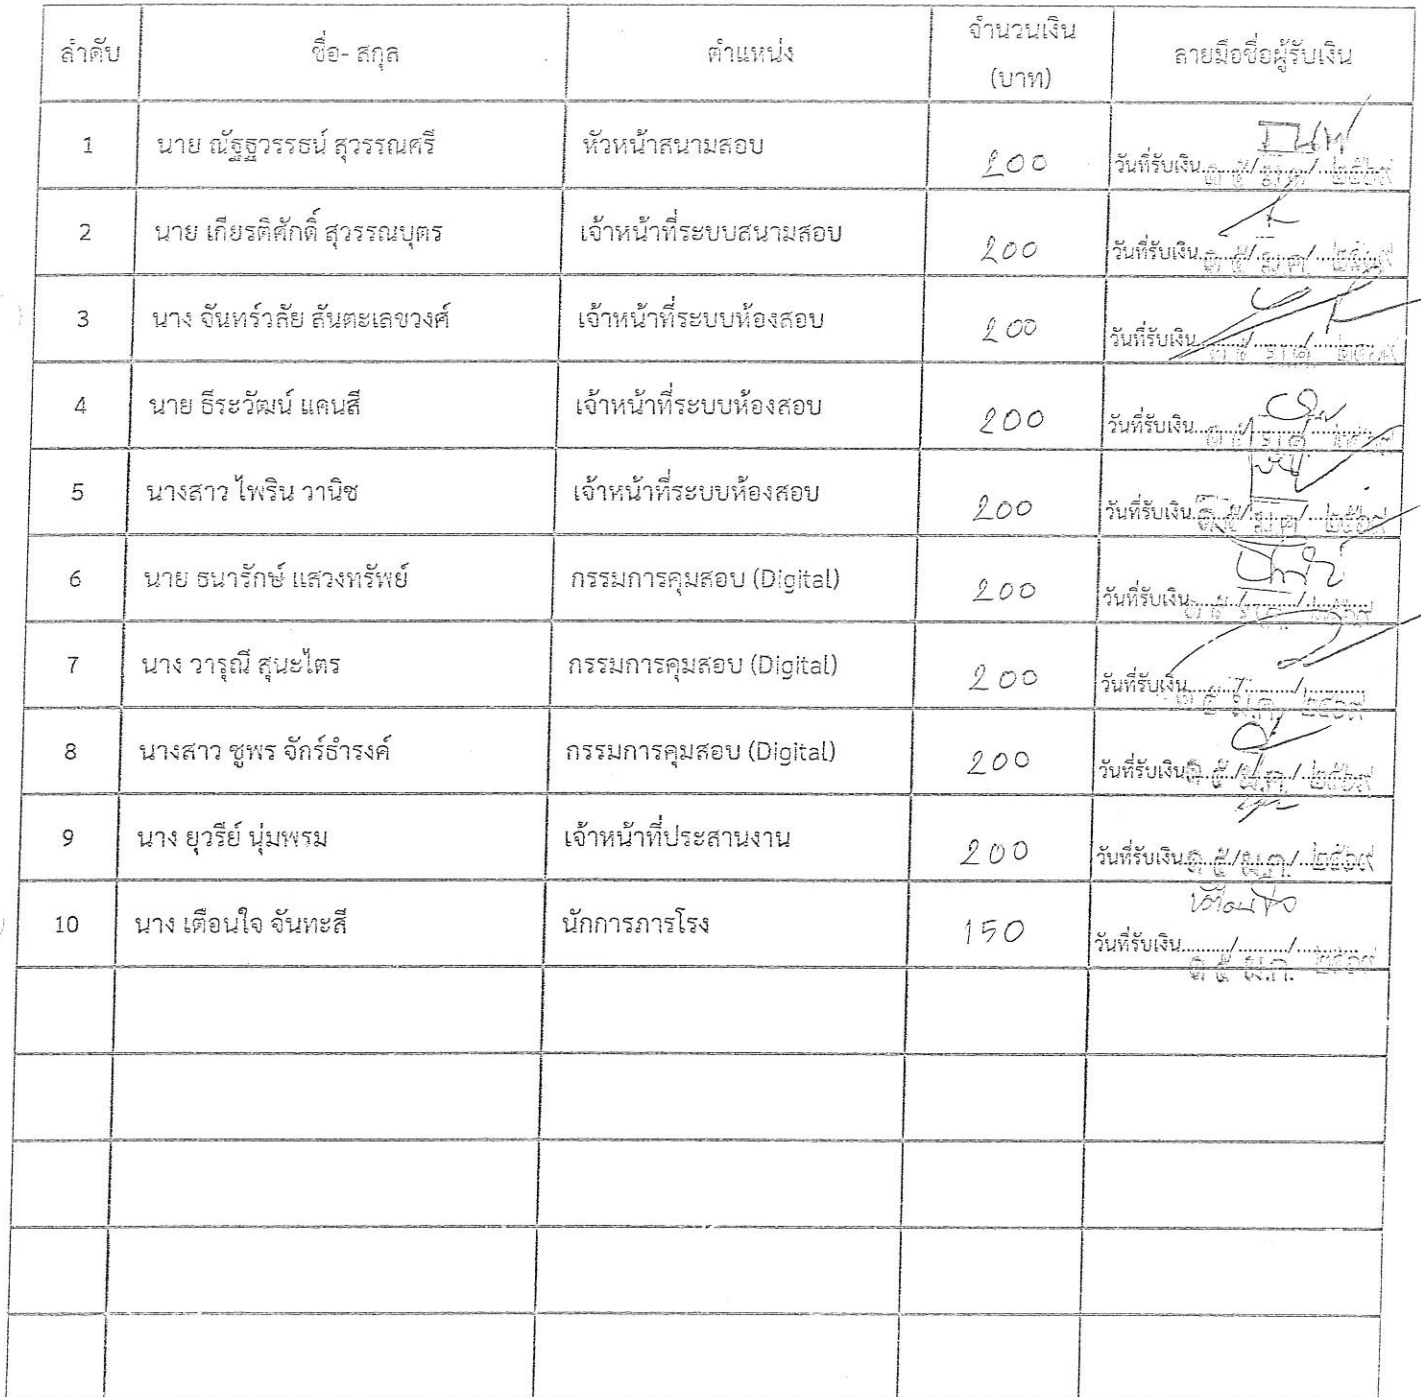 ลำดับ ชื่อ- สกุล ตำแหน่ง จำนวนเงิน (บาท) ลายมือชื่อผู้รับเงิน
1 นาย ณัฐฐวรรธน์ สุวรรณศรี หัวหน้าสนามสอบ 200 วันที่รับเงิน ๑๕ มี.ค. ๒๕๖๙
2 นาย เกียรติศักดิ์ สุวรรณบุตร เจ้าหน้าที่ระบบสนามสอบ 200 วันที่รับเงิน ๑๕ มี.ค. ๒๕๖๙
3 นาง จันทร์วลัย สันตะเลขวงศ์ เจ้าหน้าที่ระบบห้องสอบ 200 วันที่รับเงิน ๑๕ มี.ค. ๒๕๖๙
4 นาย ธีระวัฒน์ แคนสี เจ้าหน้าที่ระบบห้องสอบ 200 วันที่รับเงิน ๑๕ มี.ค. ๒๕๖๙
5 นางสาว ไพริน วานิช เจ้าหน้าที่ระบบห้องสอบ 200 วันที่รับเงิน ๑๕ มี.ค. ๒๕๖๙
6 นาย ธนารักษ์ แสวงทรัพย์ กรรมการคุมสอบ (Digital) 200 วันที่รับเงิน ๑๕ มี.ค. ๒๕๖๙
7 นาง วารุณี สุนะไตร กรรมการคุมสอบ (Digital) 200 วันที่รับเงิน ๑๕ มี.ค. ๒๕๖๙
8 นางสาว ชูพร จักร์ธำรงค์ กรรมการคุมสอบ (Digital) 200 วันที่รับเงิน ๑๕ มี.ค. ๒๕๖๙
9 นาง ยุวรีย์ นุ่มพรม เจ้าหน้าที่ประสานงาน 200 วันที่รับเงิน ๑๕ มี.ค. ๒๕๖๙
10 นาง เตือนใจ จันทะสี นักการภารโรง 150 วันที่รับเงิน ๑๕ มี.ค. ๒๕๖๙